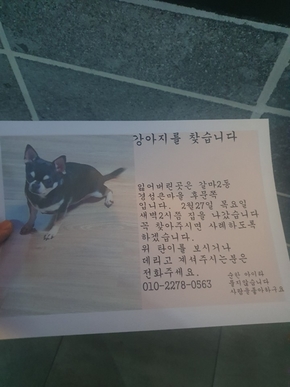 강아지를 찾습니다
잃어버린곳은 갈마2동
경성큰마을 후문쪽
입니다. 2월27일 목요일
새벽2시쯤 집을 나갔습니다
꼭 찾아주시면 사례하도록
하겠습니다.
위 탄이를 보시거나
데리고 계셔주시는분은
전화주세요.
010-2278-0563
순한 아이라
물지않습니다
사람을좋아하구요